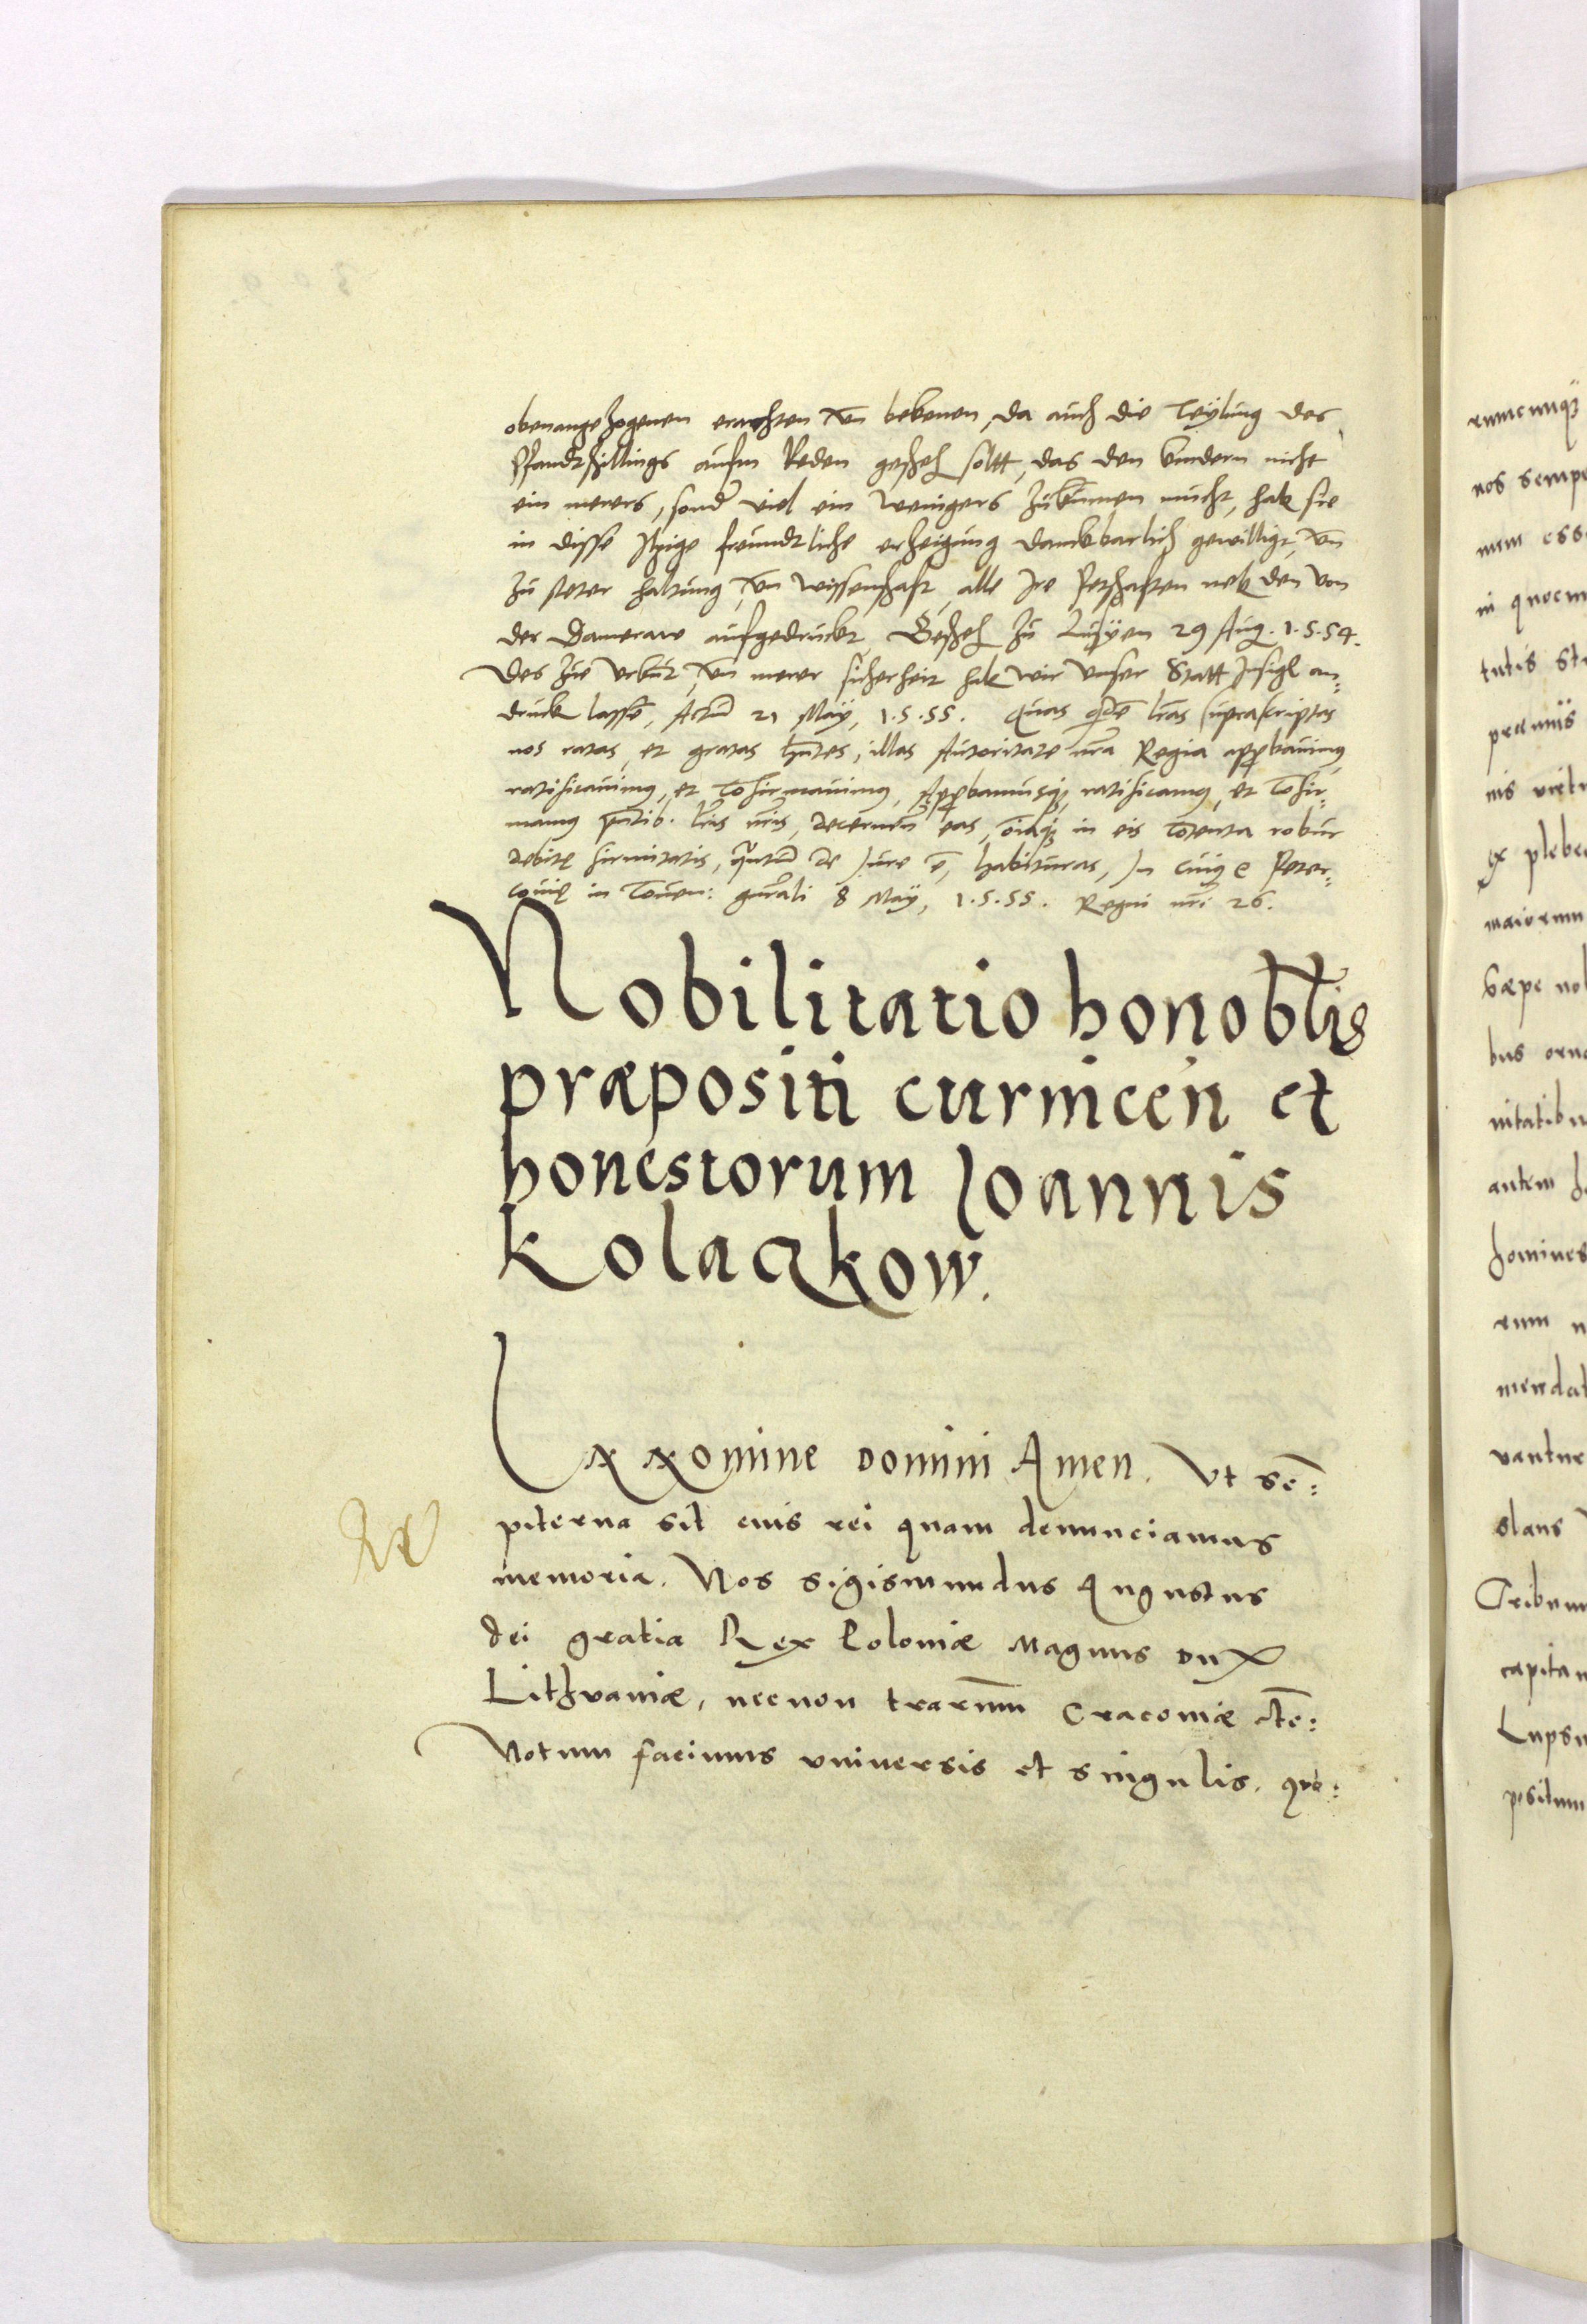 obenangezogenen erachten vn̄ bekenen, da auch die Teylung des
Pfandtschillings aufm Reden gescheh soltt, das den kindern nicht
ein merers, sonder viel ein wenigers zukumen mucht, hab sie
in disse Itzige freundtliche erzeigung danckbarlich gewilligt, vn̄
zu steter haltung, vn̄ wissenschafft, alle Ire Petschafften neb den von
der Damerau aufgedruckt. Gescheh zu 29 Aug. 1.5.54.
Des zur vrkūt, vn̄ merer sicherheit hab wir vnser Statt Insigl an=
druck lassē, Actū 21 May, 1.5.55. Quas qdē lr̄as suprascriptas
nos ratas, et gratas hn̄tes, illas Autoritate nr̄a Regia approbauimus,
ratificauimus, et cōfirmauimus, Approbamusq, ratificamus, et cōfir=
mamus pn̄tib. lr̄is nr̄is, decernen̄ eas, oīaq in eis cōtenta robur
debitę firmitatis, quātū de Iure ē, habituras, In cuius e Peter=
couię in conuen: gnr̄ali 8 May, 1.5.55. Regni nr̄i 26.
Nobilitatio honoblīs
præpositi curnicen̄ et
honestorum Ioannis
Kolaczkow.
In nomine Domini Amen. Vt sē=
piterna sit eius rei quam denunciamus
memoria. Nos Sigismundus Augustus
dei gratia Rex Poloniæ Magnus Dux
Lithvaniæ, necnon trarum̄ Cracoviæ etc̄:
Notum facimus vniversis et singulis. quo:
rumcunque
nos sempe
num esse
in quocun
tutis stu
præmiis
nis virtu
ex plebe
maiorum
Sæpe nob
bus orna
nitatibu
autem h
homines
rum n
mendat
vantur
slaus
Tribun
capitan
Lupsu
positum